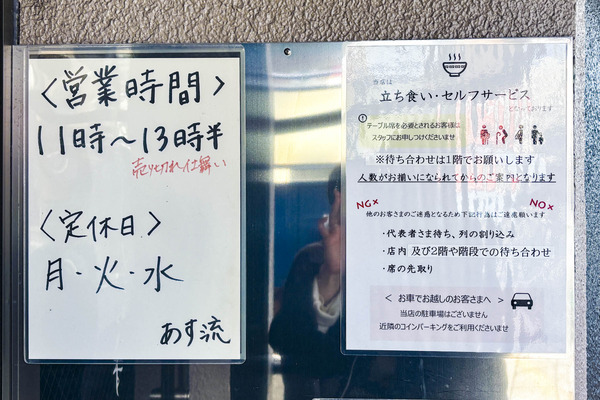 ＜営業時間＞
11時～13時半
売り切れ仕舞い
＜定休日＞
月・火・水
あす流
当店は
立ち食い・セルフサービス
となっております
テーブル席を必要とされるお客様は
スタッフにお申しつけくださいませ
※待ち合わせは1階でお願いします
人数がお揃いになられてからのご案内となります
NG×
NO×
他のお客さまのご迷惑となるため下記行為はご遠慮願います
・代表者さま待ち、列の割り込み
・店内 及び2階や階段での待ち合わせ
・席の先取り
＜ お車でお越しのお客さまへ ＞
当店の駐車場はございません
近隣のコインパーキングをご利用くださいませ